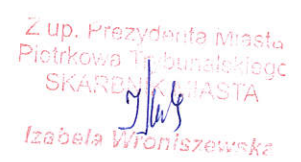 Z up. Prezydenta Miasta
Piotrkowa Trybunalskiego
SKARBNIK MIASTA
Izabela Wroniszewska